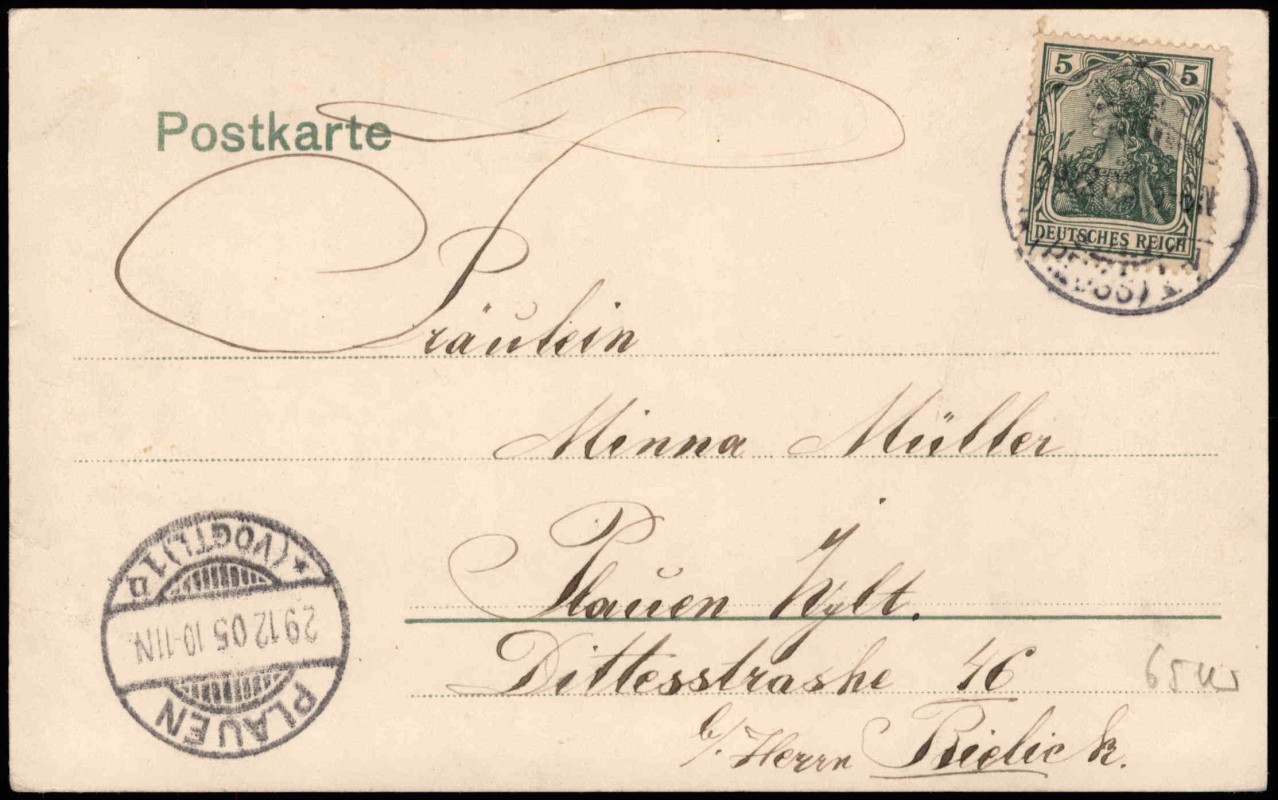 Postkarte
5 5
DEUTSCHES REICH
Fräulein
Minna Müller
Plauen i/Vgtl.
Dittesstrashe 46
b/ Herrn Bielick.
PLAUEN
29.12 05 10-11N
* (VOGTL) 1 a